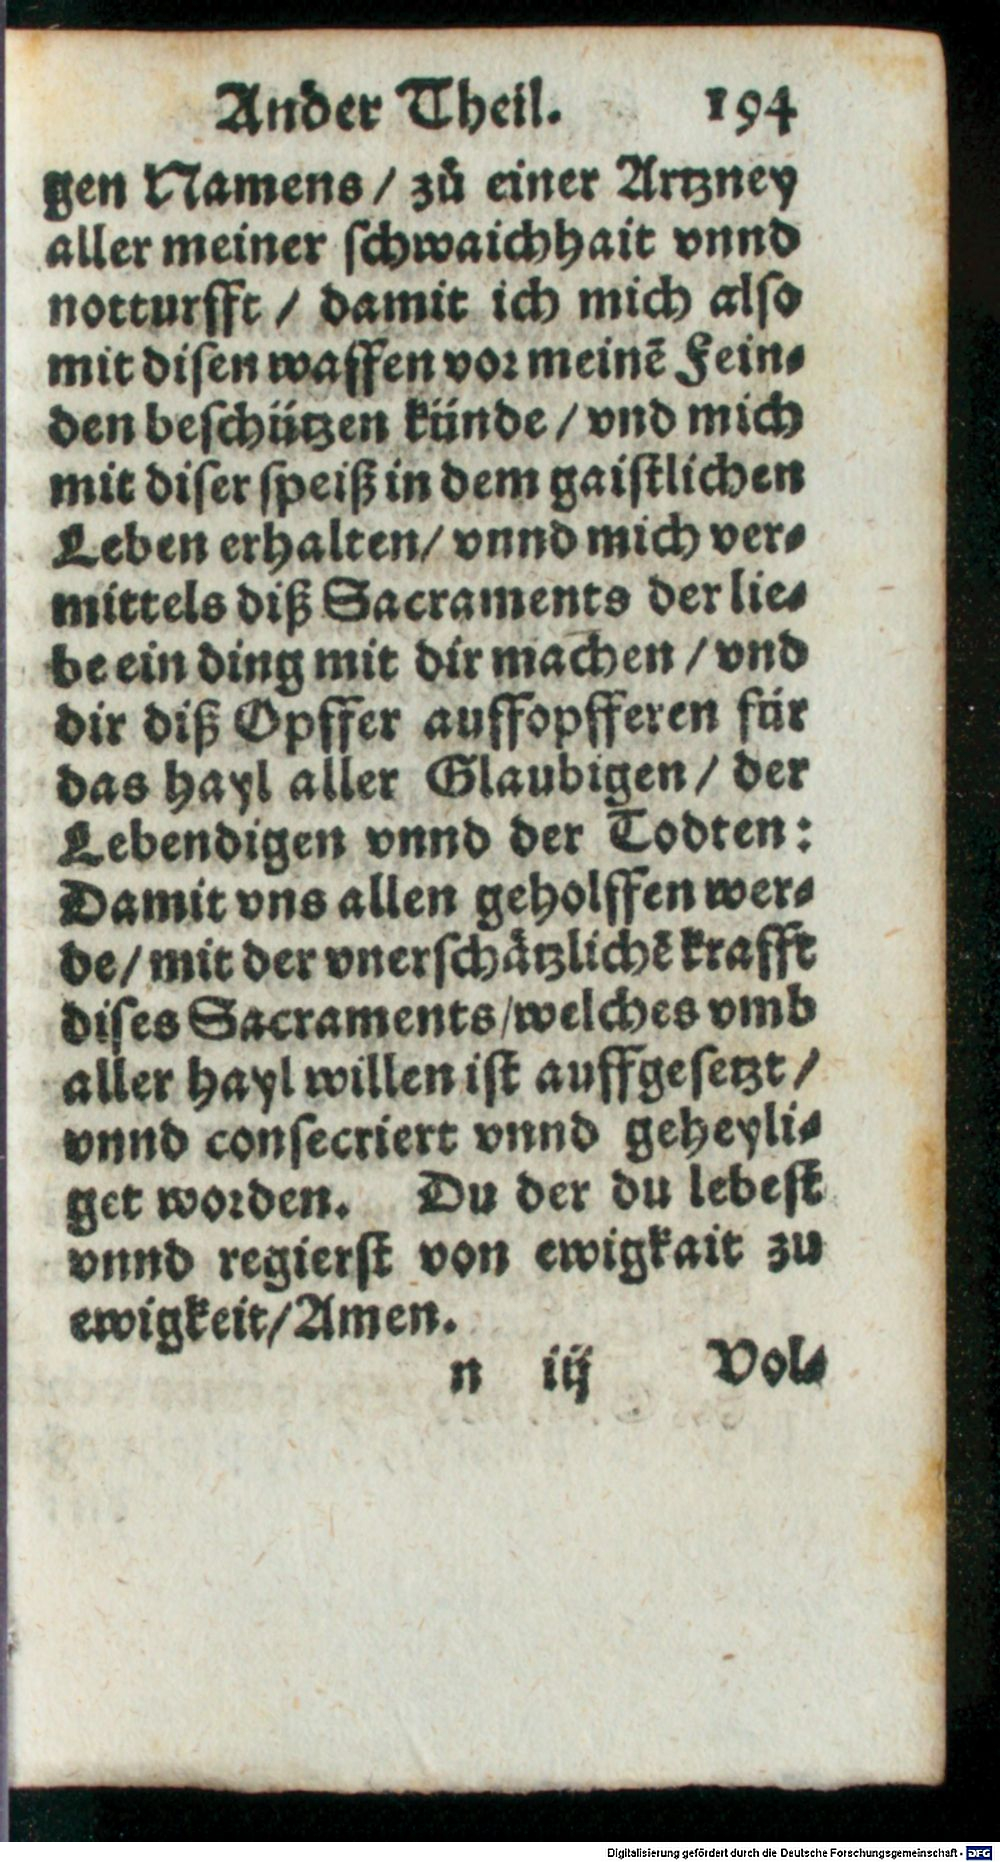 Ander Theil. 194
gen Namens / zů einer Artzney
aller meiner schwaichhait vnnd
notturfft / damit ich mich also
mit disen waffen vor meinē Fein-
den beschützen künde / vnd mich
mit diser speiß in dem gaistlichen
Leben erhalten / vnnd mich ver-
mittels diß Sacraments der lie-
be ein ding mit dir machen / vnd
dir diß Opffer auffopfferen für
das hayl aller Glaubigen / der
Lebendigen vnnd der Todten:
Damit vns allen geholffen wer-
de / mit der vnerschåtzlichē krafft
dises Sacraments / welches vmb
aller hayl willen ist auffgesetzt /
vnnd consecriert vnnd geheyli-
get worden. Du der du lebest
vnnd regierst von ewigkait zu
ewigkeit / Amen.
n iij Vol-
Digitalisierung gefördert durch die Deutsche Forschungsgemeinschaft - DFG